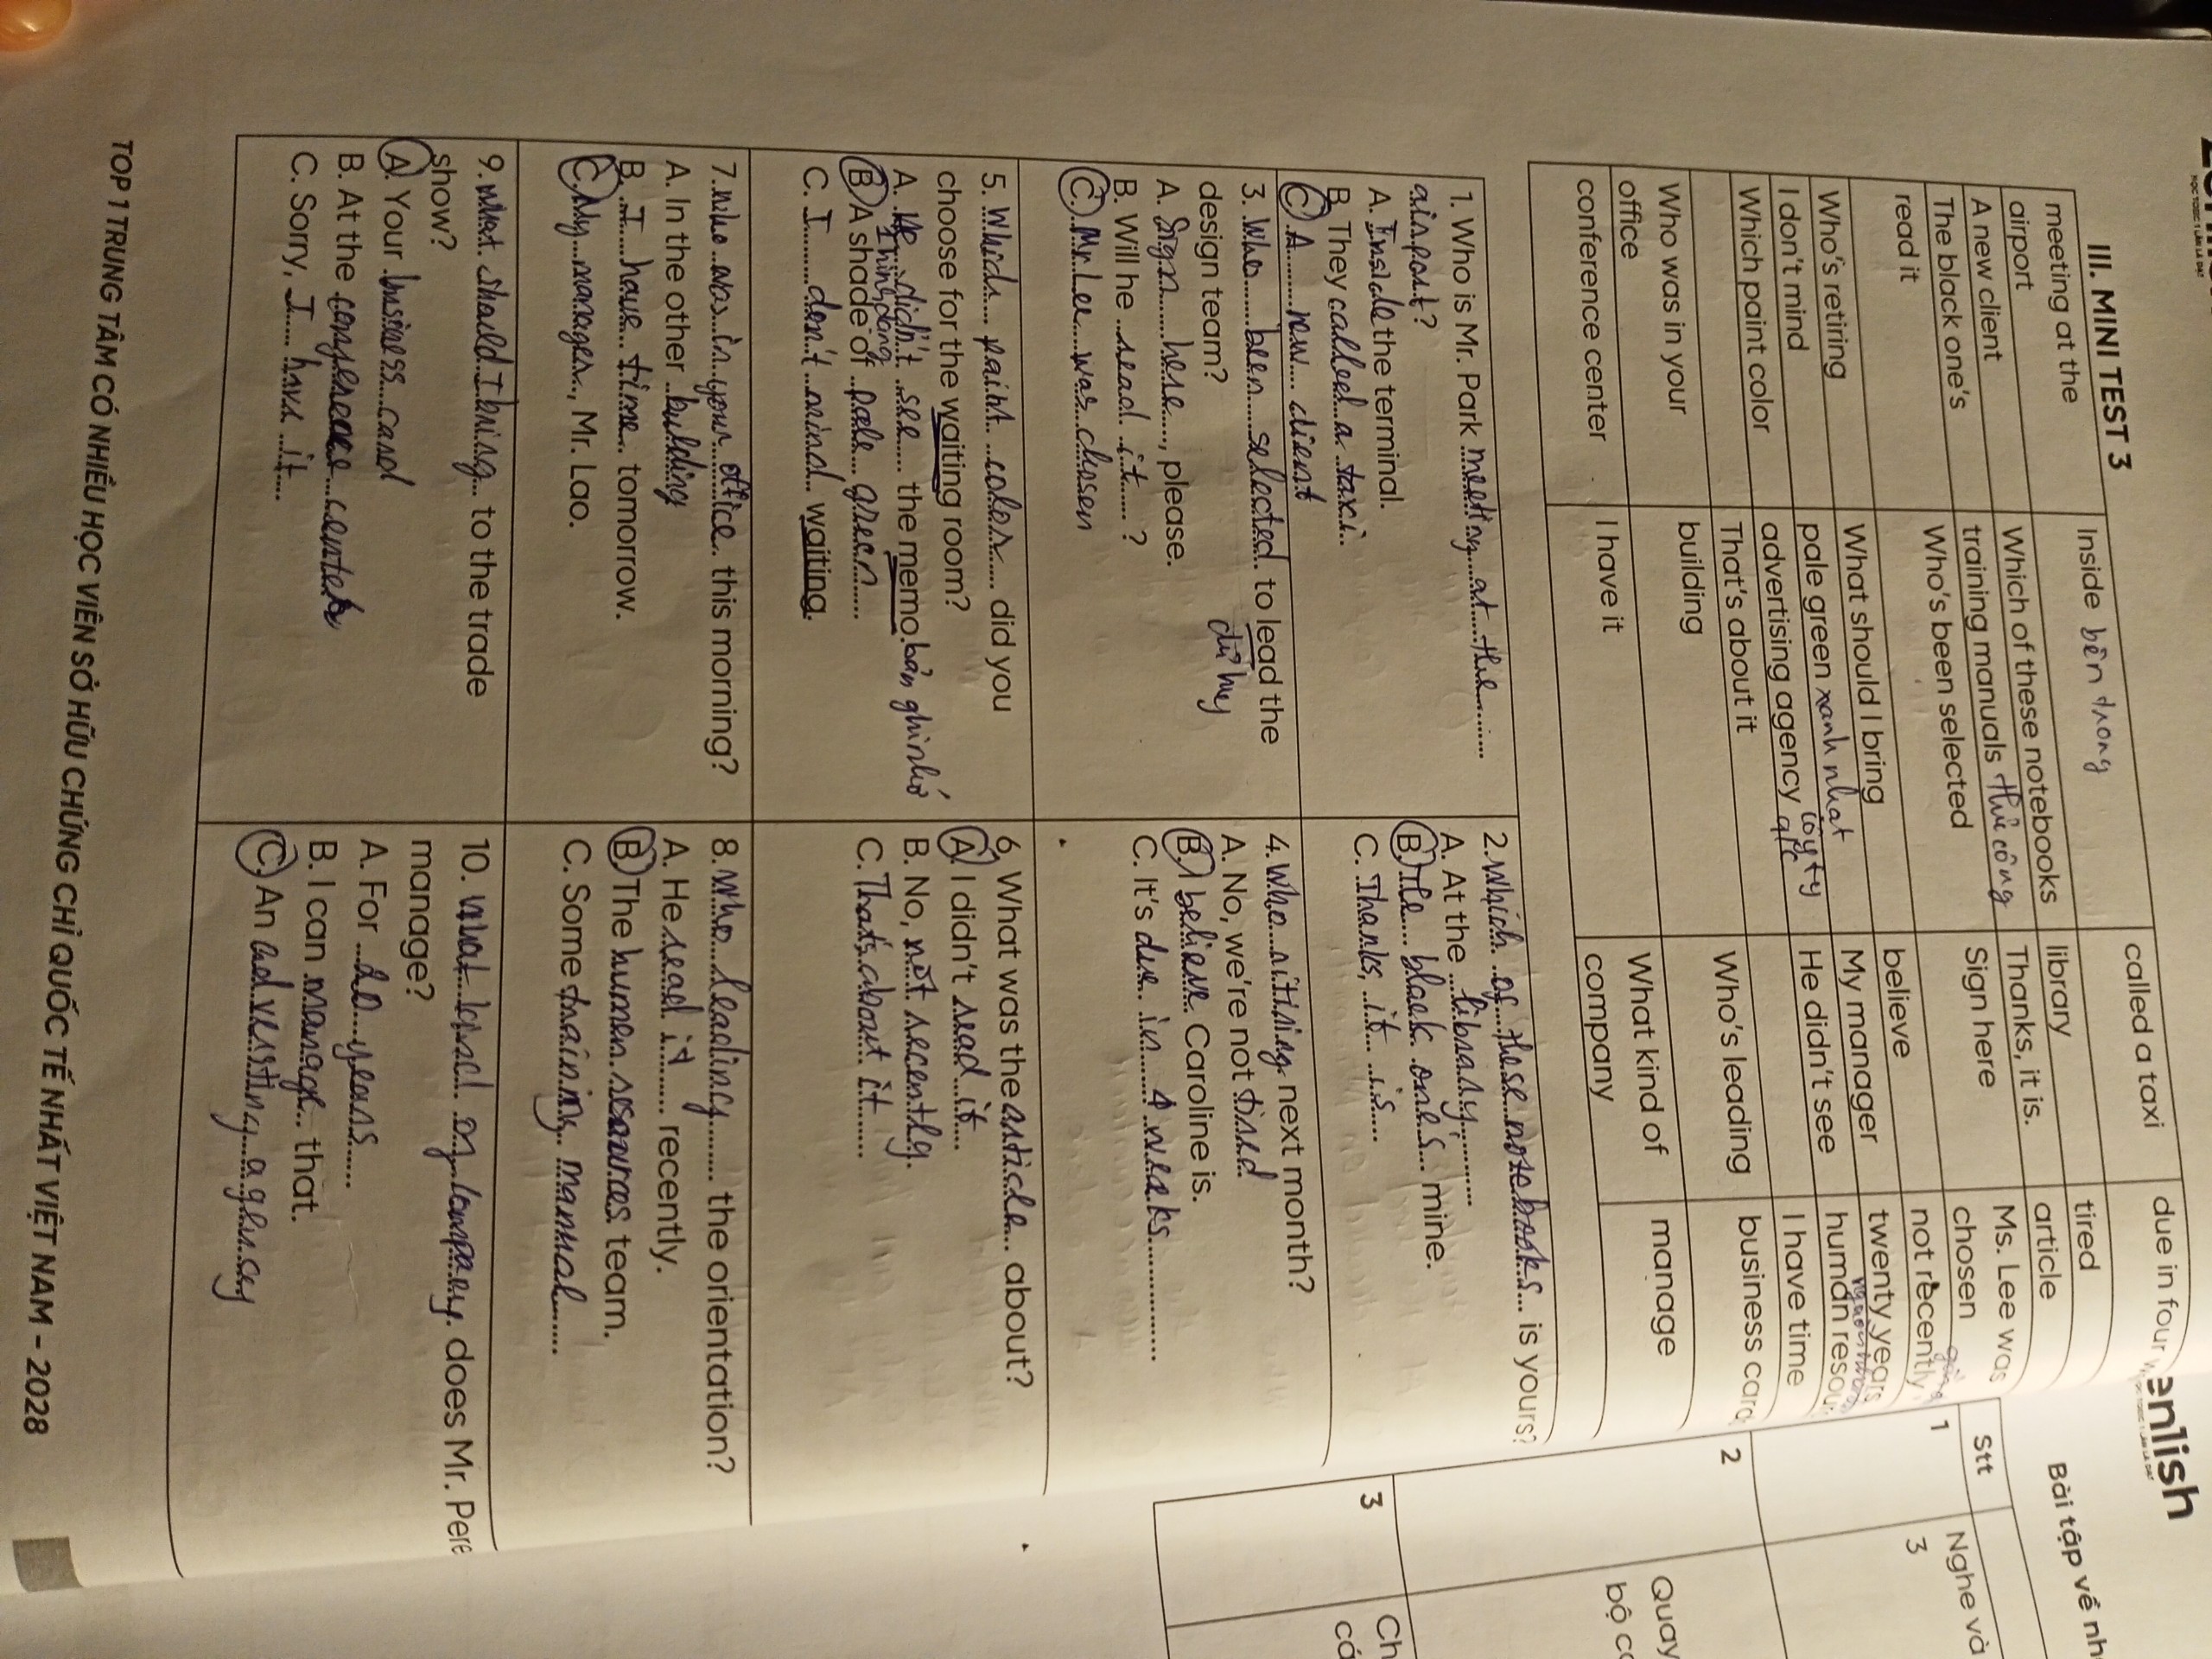 III. MINI TEST 3
meeting at the airport
Inside bên trong
called a taxi
due in four
A new client
Which of these notebooks
library
tired
The black one's
training manuals thủ công
Thanks, it is.
article
read it
Who's been selected
Sign here
Ms. Lee was chosen
Who's retiring
What should I bring
believe
not recently
I don't mind
pale green xanh nhạt
My manager
twenty years
Which paint color
advertising agency công ty qc
He didn't see
human resou
Who was in your office
That's about it
Who's leading
I have time
conference center
building
What kind of company
business card
I have it
manage
1. Who is Mr. Park meeting at the
airport?
A. Inside the terminal.
B. They called a taxi.
C. A new client
2. Which of these notebooks is yours?
A. At the library
B. The black one's mine.
C. Thanks, it is
3. Who been selected to lead the
design team?
A. Sign here, please.
B. Will he read it ?
C. Mr Lee was chosen
4. Who ritising next month?
A. No, we're not tired
B. I believe Caroline is.
C. It's due in 4 weeks
5. Which paint color did you
choose for the waiting room?
A. He didn't see the memo. bản ghi nhớ
B. A shade of pale green
C. I don't mind waiting.
6. What was the article about?
A. I didn't read it
B. No, not recently.
C. That's about it
7. Who was in your office this morning?
A. In the other building
B. I have time tomorrow.
C. My manager, Mr. Lao.
8. Who leading the orientation?
A. He read it recently.
B. The human resources team.
C. Some training manual
9. What should I bring to the trade
show?
A. Your business card
B. At the conference center
C. Sorry, I have it
10. What kind of company does Mr. Pere
manage?
A. For 20 years
B. I can manage that.
C. An advertising agency
TOP 1 TRUNG TÂM CÓ NHIỀU HỌC VIÊN SỞ HỮU CHỨNG CHỈ QUỐC TẾ NHẤT VIỆT NAM - 2028
enlish
Bài tập về nh
Stt
Nghe và
1
3
2
Quay
bộ c
3
Ch
cá